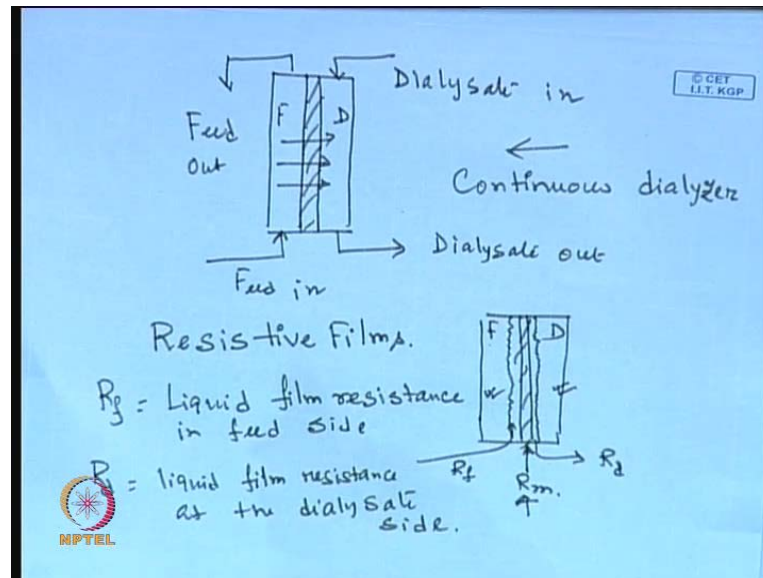 Dialysate in
© CET
I.I.T. KGP
Feed
out
F
D
Continuous dialyzer
Dialysate out
Feed in
Resistive Films.
F
D
Rf = Liquid film resistance
in feed side
Rf
Rm.
Rd
Rd = liquid film resistance
at the dialysate
side.
NPTEL